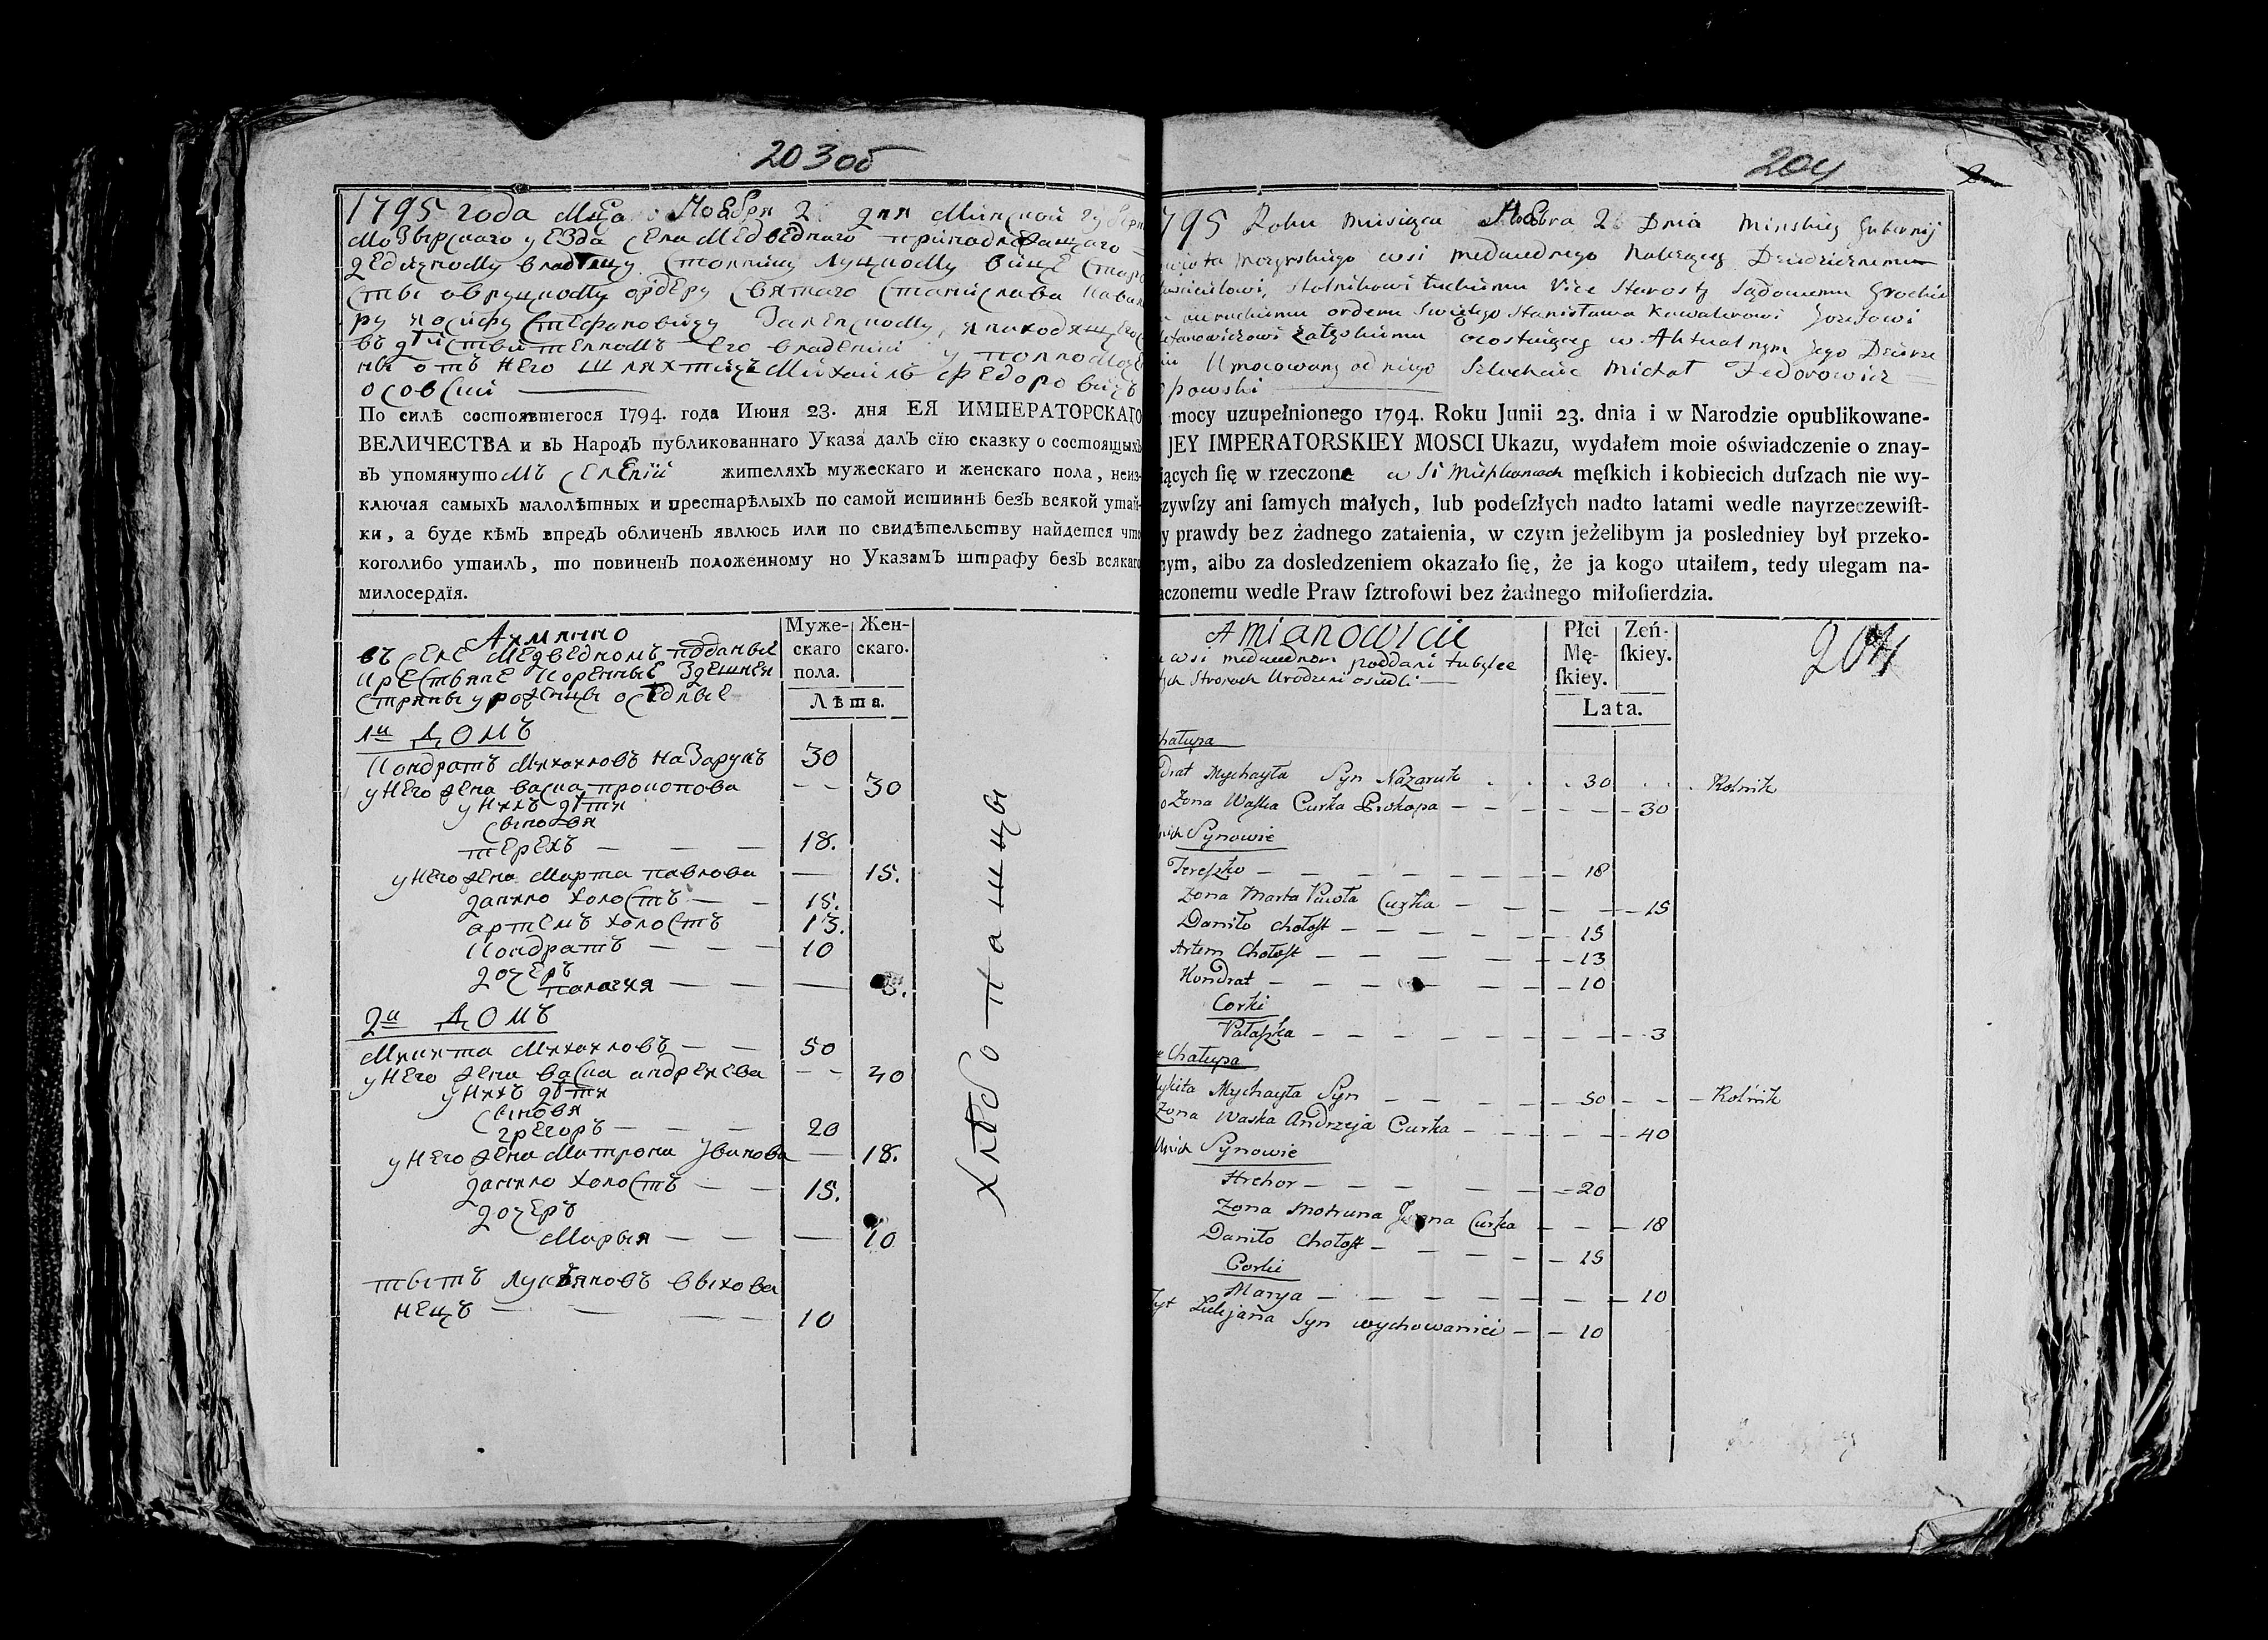 203об
1795 года Мца Ноября 2 дня Минской губерн
Мозырскаго уезда села Медведнаго принадлежащаго
дедичному владелцу столнику Луцкому вице старо
сты овруцкому ордеру святаго Станислава кавале
ру иосифу Стефановичу Заленскому, а находящегос
въ действителномъ его владении у полномоче
ны отъ него шляхтичь Михаилъ Федоровичъ
осовский
По силѣ состоявшегося 1794. года Июня 23. дня ЕЯ ИМПЕРАТОРСКАГО
ВЕЛИЧЕСТВА и въ Народъ публикованнаго Указа далъ сїю сказку о состоящыхъ
въ упомянутомъ селении жителяхъ мужескаго и женскаго пола, неиз-
ключая самыхъ малолѣтныхъ и престарѣлыхъ по самой истиннѣ безъ всякой утай-
ки, а буде кѣмъ впредъ обличенъ явлюсь или по свидѣтельству найдется что
коголибо утаилъ, то повиненъ положенному по Указамъ штрафу безъ всякаго
милосердїя.
Аимянно
въ селе Медведномъ поданые
крестьяне коренные здешней
страны уроженцы оседлые
Муже-
скаго
пола.
Жен-
скаго.
Лѣта.
1й Домъ
Кондратъ Михаиловъ Назарукъ 30
у Него жена васка прокопова — — 30
у Нихъ дети
сыновя
терехъ — — — 18.
у Него жена Марта павлова — 15.
данило холостъ — — 15.
артемъ холостъ 13.
Кондратъ — — — 10
дочеръ
палагия — — — 3.
2й Домъ
Микита Михаиловъ — — 50
у Него жена васка андреева — — 40
у Нихъ дети
сыновя
грегоръ — — — 20
у Него жена Матрона Иванова — 18.
данило холостъ — — 15.
дочеръ
Марья — — — 10
титъ Лукьяновъ выхова
нецъ — — — 10
Хлебопашцы
204
1795 Roku Miesiąca Nowbra 2 Dnia Minskiey Gubernij
Mozyrskiego wsi Miedwednego Należącey Dziedzicznemu
Stolnikowi Łuckiemu Vice Starosty Sądowemu Grodzkie
owruckiemu orderu Swiętego Stanisława Kawalerowi Jozefowi
Stefanowiczowi Załęskiemu a zostaiącey w Aktualnym Jego Dzierże
niu Umocowany od niego Szlachcic Michał Fedorowicz
mocy uzupełnionego 1794. Roku Junii 23. dnia i w Narodzie opublikowane-
JEY IMPERATORSKIEY MOSCI Ukazu, wydałem moie oświadczenie o znay-
iących ſię w rzeczone w Si Mieſzkancach męſkich i kobiecich duſzach nie wy-
zywſzy ani ſamych małych, lub podeſzłych nadto latami wedle nayrzeczewiſt-
y prawdy bez żadnego zataienia, w czym jeżelibym ja posledniey był przeko-
nym, albo za dosledzeniem okazało ſię, że ja kogo utaiłem, tedy ulegam na-
aczonemu wedle Praw ſztrofowi bez żadnego miłoſierdzia.
Amianowicie
wsi Miedwednom poddani tubylce
tych Stronach Urodzeni osiedli —
Płci
Mę-
ſkiey.
Zeń-
ſkiey.
Lata.
204
Chałupa
drat Mychayła Syn Nazaruk . . . 30 . . . Rolnik
Zona Waſka Curka Prokopa — — — — — 30
nich Synowie
Tereſzko — — — — — — — 18
Zona Marta Pawła Curka — — — — — 15
Daniło chołoſt — — — — — — 15
Artem Chołoſt — — — — — — 13
Kondrat — — — — — — — 10
Corki
Pałaſzka — — — — — — — — 3
Chałupa
Mykita Mychayła Syn — — — — — 50 — — — Rolnik
Zona Waska Andrzeja Curka — — — — — 40
Unich Synowie
Hrehor — — — — — — 20
Zona Motruna Jwana Curka — — — 18
Daniło Chołoſt — — — — — — 15
Corki
Marya — — — — — — — — 10
Tyt Łukjana Syn wychowaniec — — 10